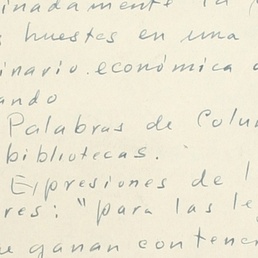 inadamente la
huestes en una
inario.económica
ando
Palabras de Colu
bibliotecas.
Expresiones de l
res: "para las le
ue ganan con tener